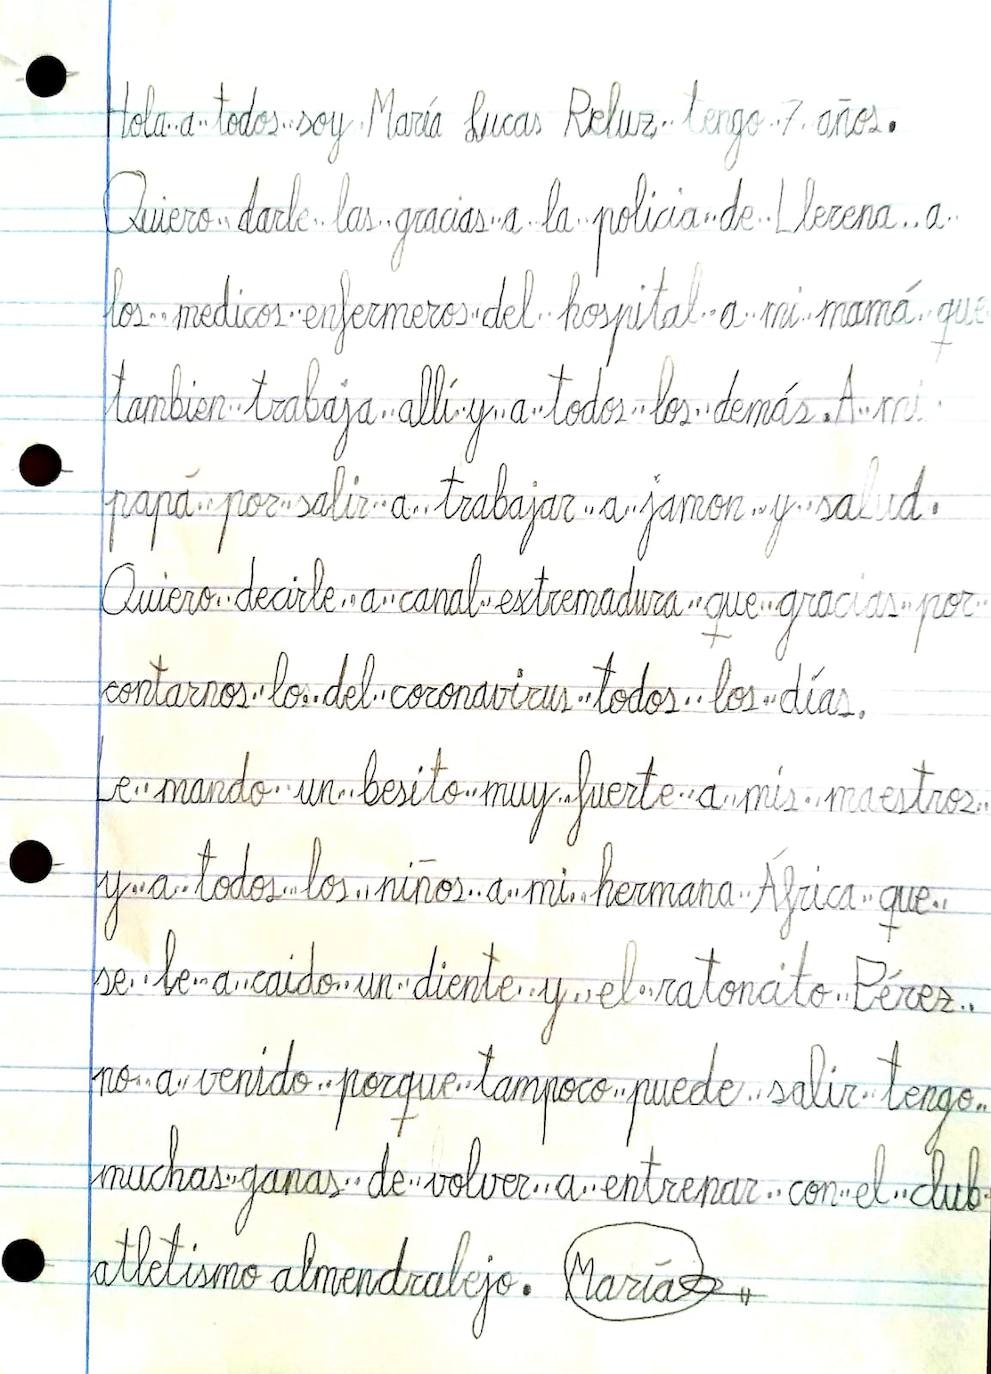 Hola a todos soy María Lucas Reluz tengo 7 años.
Quiero darle las gracias a la policia de Llerena a
los medicos enfermeros del hospital a mi mamá que
tambien trabaja allí y a todos los demás. A mi
papá por salir a trabajar a jamon y salud.
Quiero decirle a canal extremadura que gracias por
contarnos lo del coronavirus todos los días.
Le mando un besito muy fuerte a mis maestros
y a todos los niños a mi hermana África que
se le a caido un diente y el ratoncito Pérez
no a venido porque tampoco puede salir tengo
muchas ganas de volver a entrenar con el club
atletismo almendralejo. María